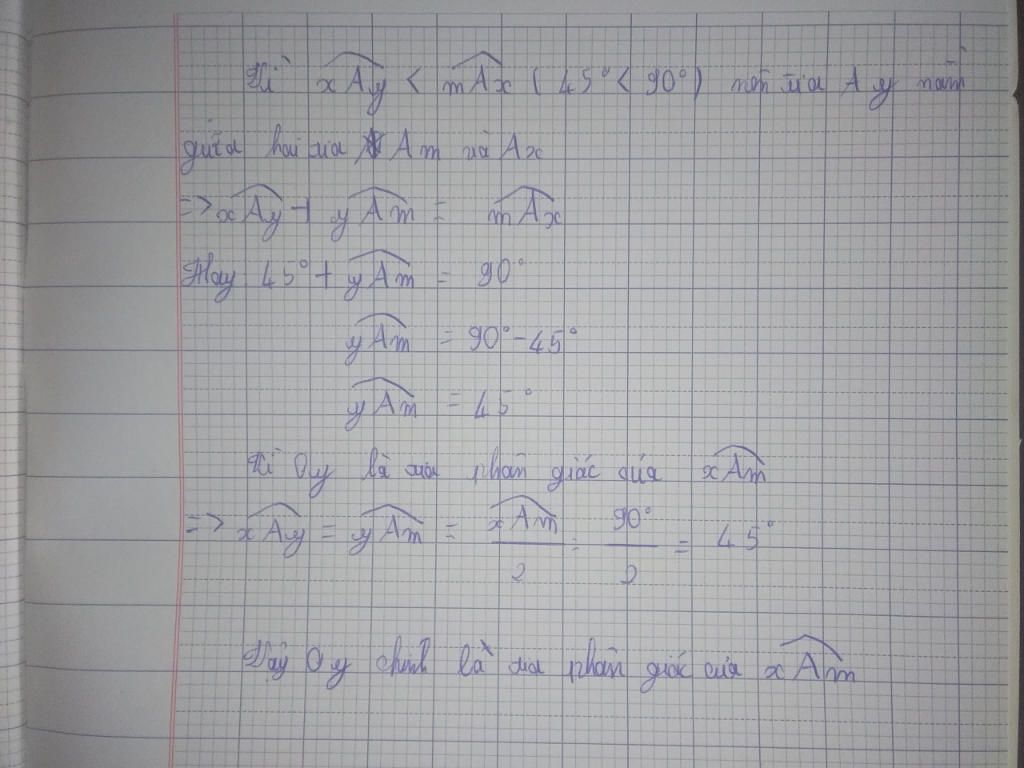 Vì xAy < mAx ( 45° < 90° ) nên tia Ay nằm
giữa hai tia Am và Ax
=> xAy + yAm = mAx
Hay 45° + yAm = 90°
yAm = 90° - 45°
yAm = 45°
Vì Oy là tia phân giác của xAm
=> xAy = yAm = xAm/2 = 90°/2 = 45°
Vậy Oy chính là tia phân giác của xAm